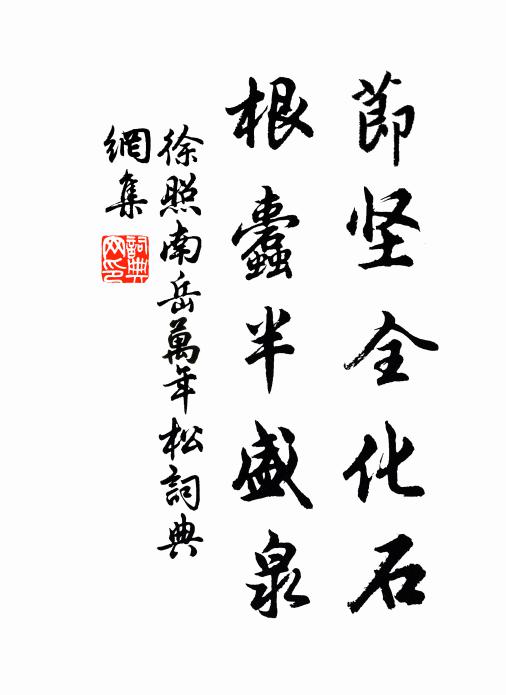 節坚全化石
根蠹半盛泉
徐照南岳萬年松詞典
網集
詞典
网印